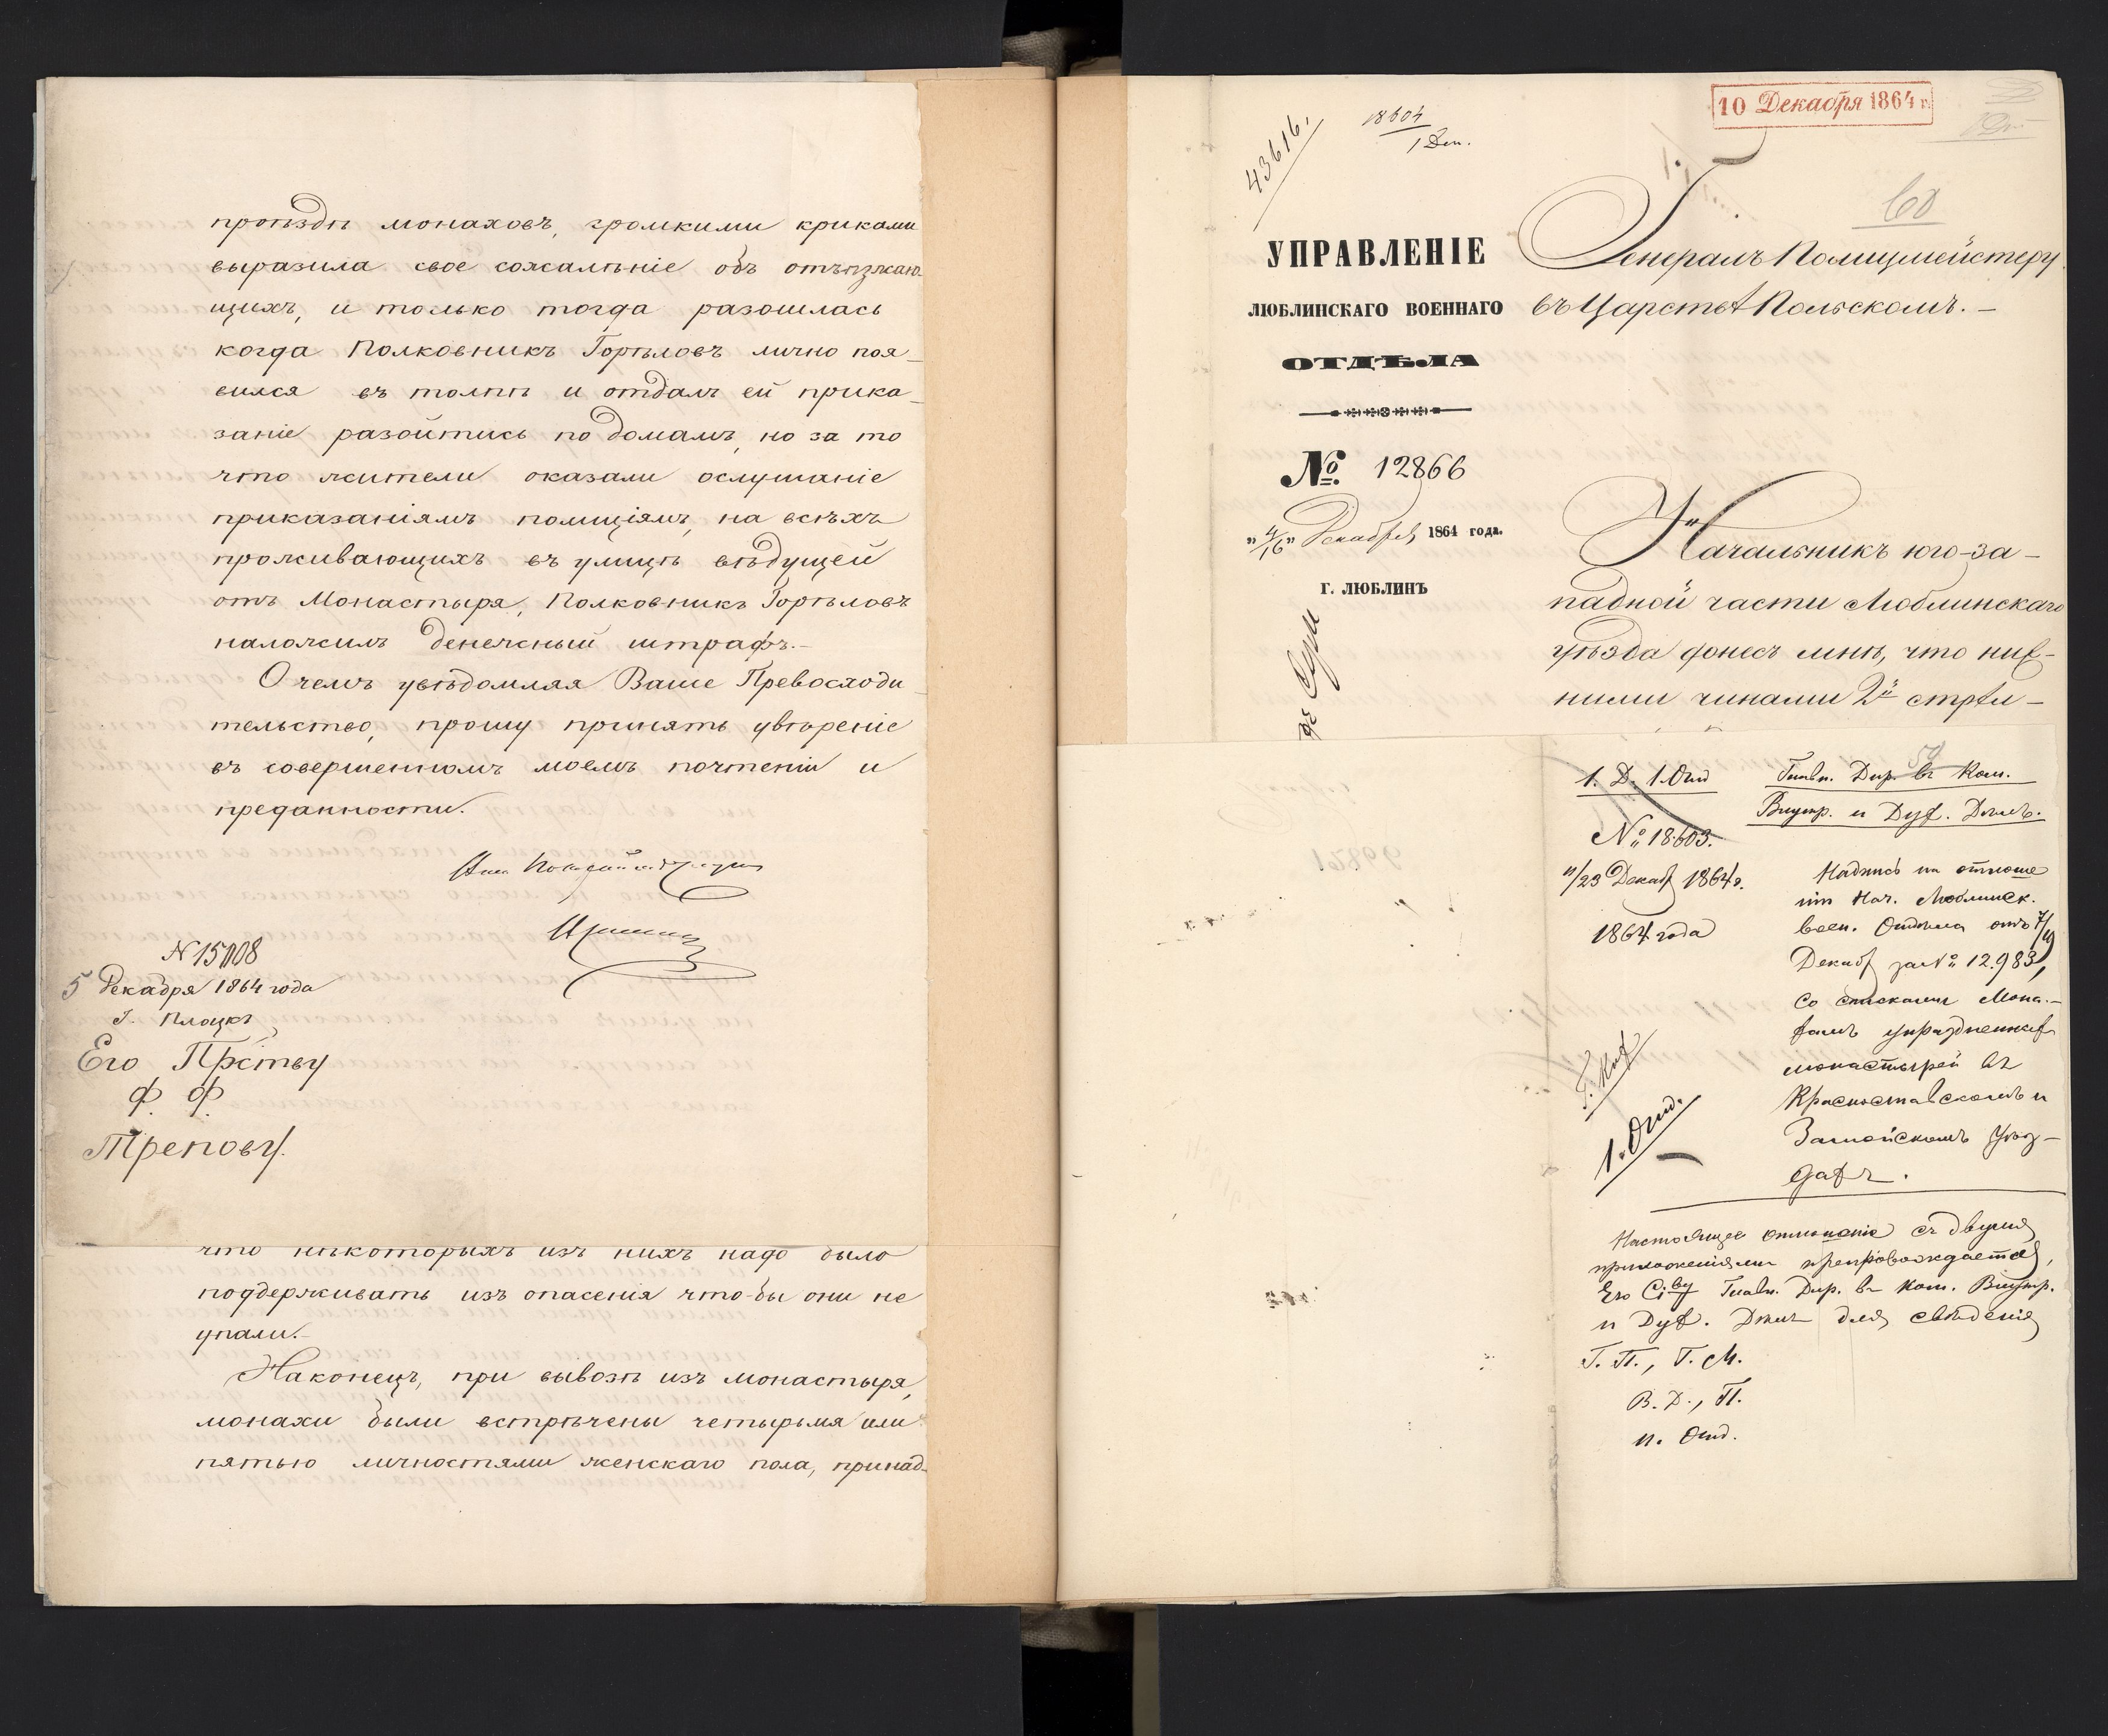 проѣздѣ монаховъ, громкими криками
выразила свое сожалѣніе объ отъѣзжаю-
щихъ, и только тогда разошлась
когда Полковникъ Горѣловъ лично поя-
вился въ толпѣ и отдалъ ей прика-
заніе разойтись по домамъ, но за то
что жители оказали ослушаніе
приказаніямъ полиціямъ, на всѣхъ
проживающихъ въ улицѣ вѣдущей
отъ Монастыря, Полковникъ Горѣловъ
наложилъ денежный штрафъ.-
О чемъ увѣдомляя Ваше Превосходи-
тельство, прошу принять увѣреніе
въ совершенномъ моемъ почтеніи и
преданности.
N 15008
5 Декабря 1864 года
Г. Плоцкъ
Его Прѣству
Ф. Ф.
Трепову.
что нѣкоторыхъ изъ нихъ надо было
поддерживать изъ опасенія что-бы они не
упали.-
Наконецъ, при вывозѣ изъ монастыря,
монахи были встрѣчены четырьмя или
пятью личностями женскаго пола, принад-
10 Декабря 1864 г.
43616.
18604
1 Деп.
60
УПРАВЛЕНІЕ
ЛЮБЛИНСКАГО ВОЕННАГО
ОТДѢЛА
№ 12866
"4/16" Декабря 1864 года.
Г. ЛЮБЛИНЪ
Генералъ Полицмейстеру
въ Царствѣ Польскомъ.-
Начальникъ юго-за-
падной части Люблинскаго
уѣзда донесъ мнѣ, что ниж-
ними чинами 2й стрѣл-
1. Д. 1. Отд
№ 18.603.
11/23 Декаб 1864 г.
1864 года
Главн. Дир. въ Ком.
Внутр. и Дух. Дѣлъ.
Надпись на отноше
ніи Нач. Люблинск.
воен. Отдѣла отъ 7/19
Декаб за № 12.983,
со спискомъ Мона-
хамъ упраздненныхъ
монастырей въ
Красноставскомъ и
Замойскомъ Уѣз-
дахъ.
1. Отд.
Настоящее отношеніе съ двумя
приложеніями препровождается
Его Сіву Главн. Дир. въ Ком. Внутр.
и Дух. Дѣлъ для свѣденія
Г. П., Г. М.
В. Д., П.
н. Отд.